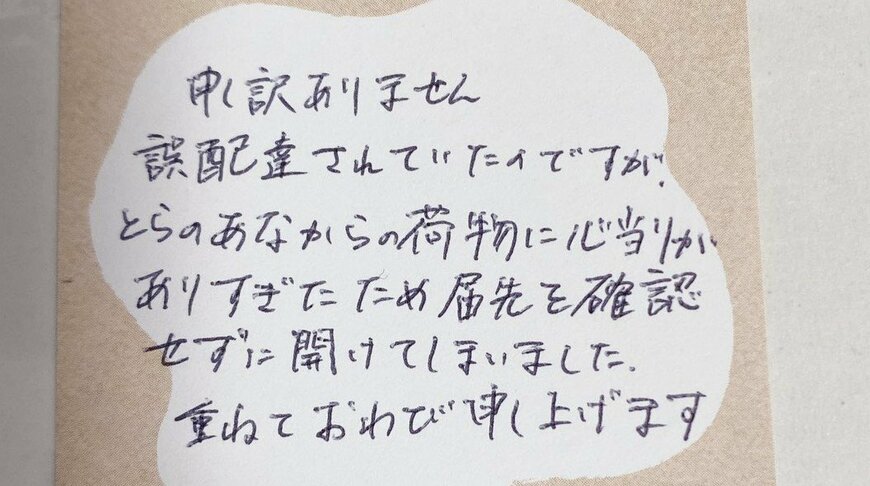 申し訳ありません
誤配達されていたのですが、
とらのあなからの荷物に心当りが
ありすぎたため届先を確認
せずに開けてしまいました.
重ねておわび申し上げます